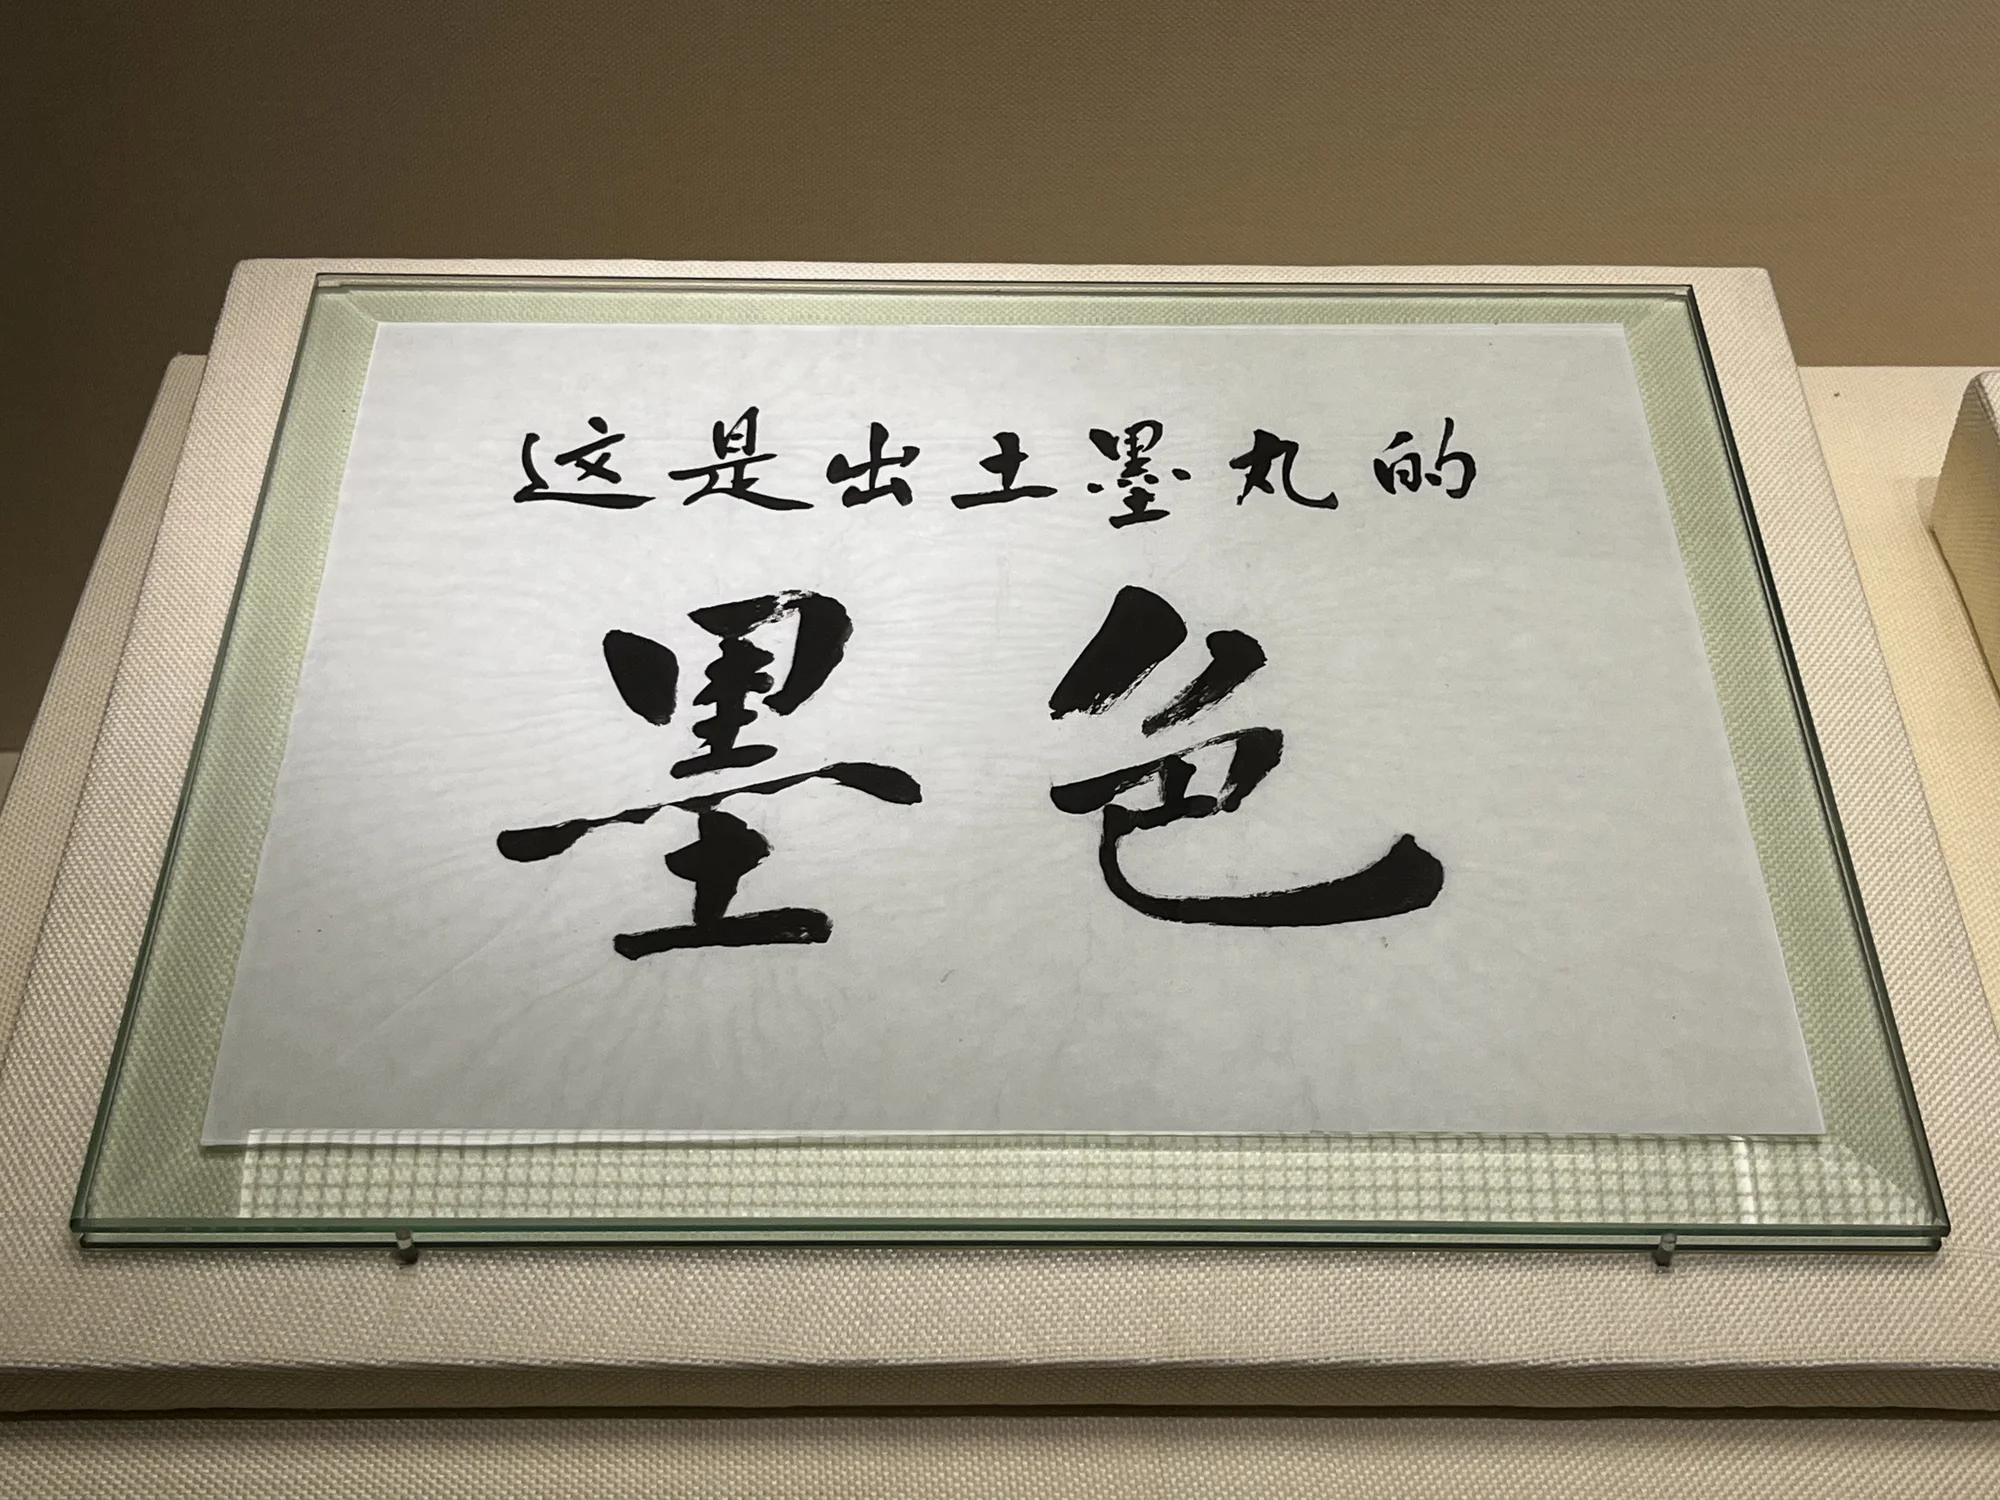 这是出土墨丸的
墨色